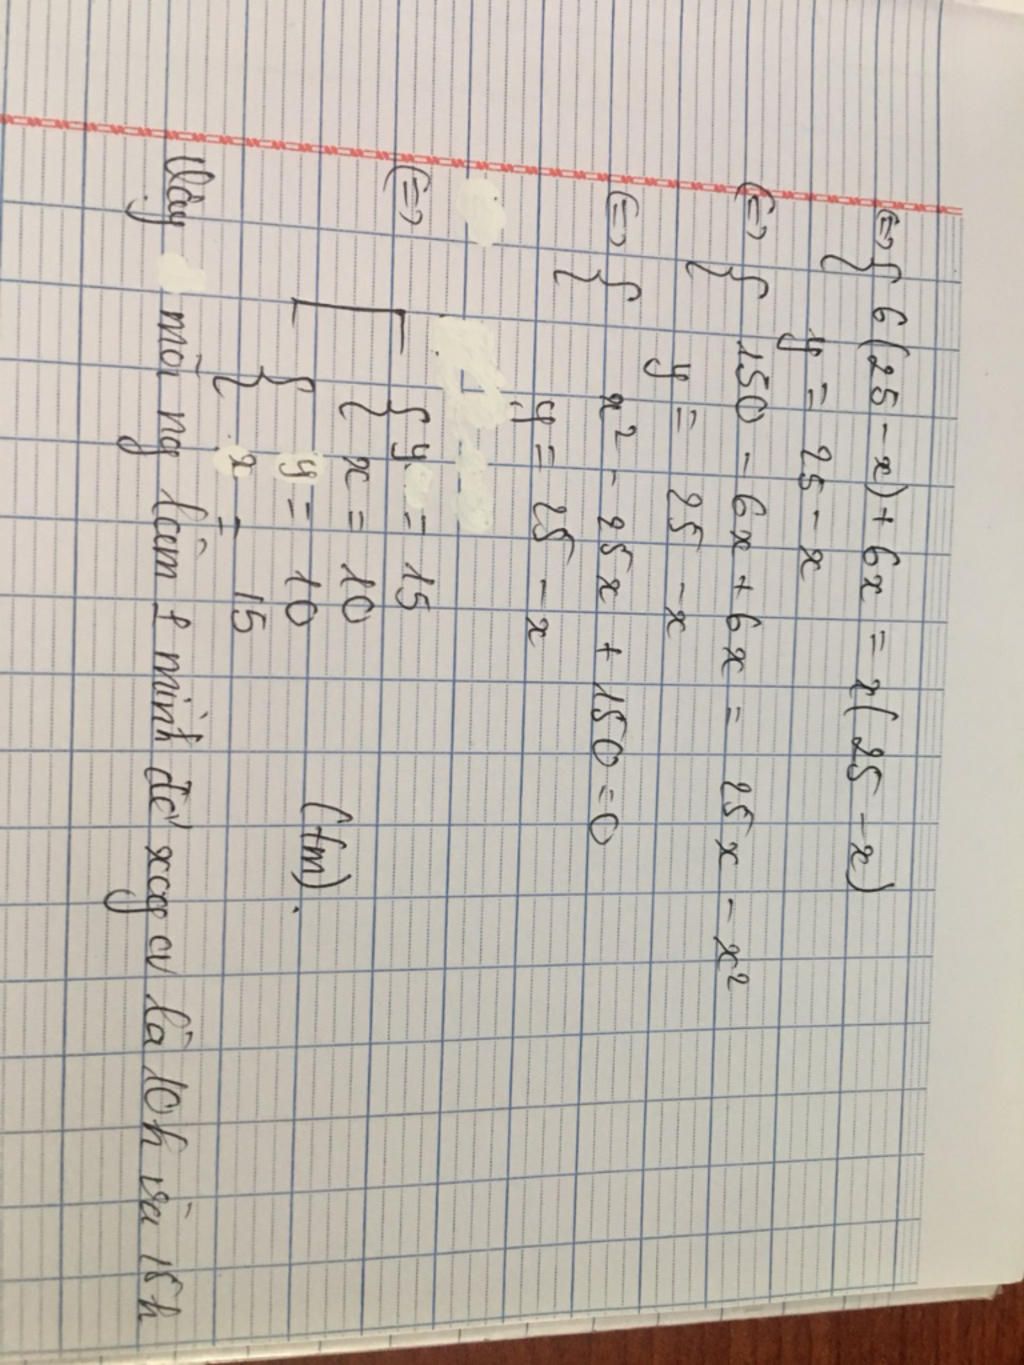 (=) { 6(25 - x) + 6x = x(25 - x)
y = 25 - x
(=) { 150 - 6x + 6x = 25x - x²
y = 25 - x
(=) { x² - 25x + 150 = 0
y = 25 - x
(=) [ { y = 15
x = 10
{ y = 10 (tm).
x = 15
Vậy mỗi ng làm 1 mình để xog cv là 10h và 15h